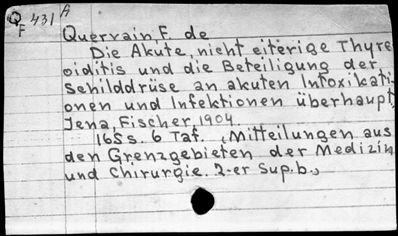 Q 431 A
F
Quervain F. de
Die Akute, nicht eiterige Thyre
oiditis und die Beteiligung der
Schilddrüse an akuten Intoxikati-
onen und Infektionen überhaupt,
Jena, Fischer, 1904.
165 s. 6 Taf. „Mitteilungen aus
den Grenzgebieten der Medizin
und Chirurgie. 2-er Sup.b."